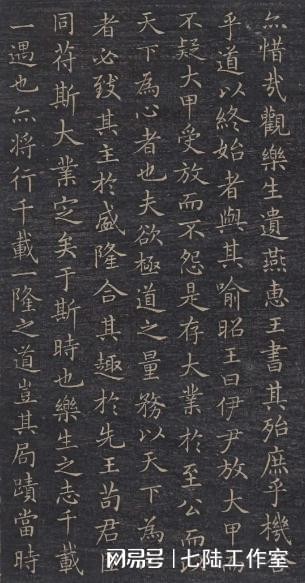 亦惜哉觀樂生遺燕惠王書其殆庶乎機合
乎道以終始者與其喻昭王曰伊尹放大甲而
不疑大甲受放而不怨是存大業於至公而
天下為心者也夫欲極道之量務以天下為
者必致其主於盛隆合其趣於先王苟君臣
同符斯大業定矣于斯時也樂生之志千載
一遇也亦將行千載一隆之道豈其局蹟當時
网易号 | 七陆工作室